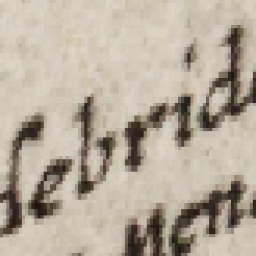 Sebrid
Men